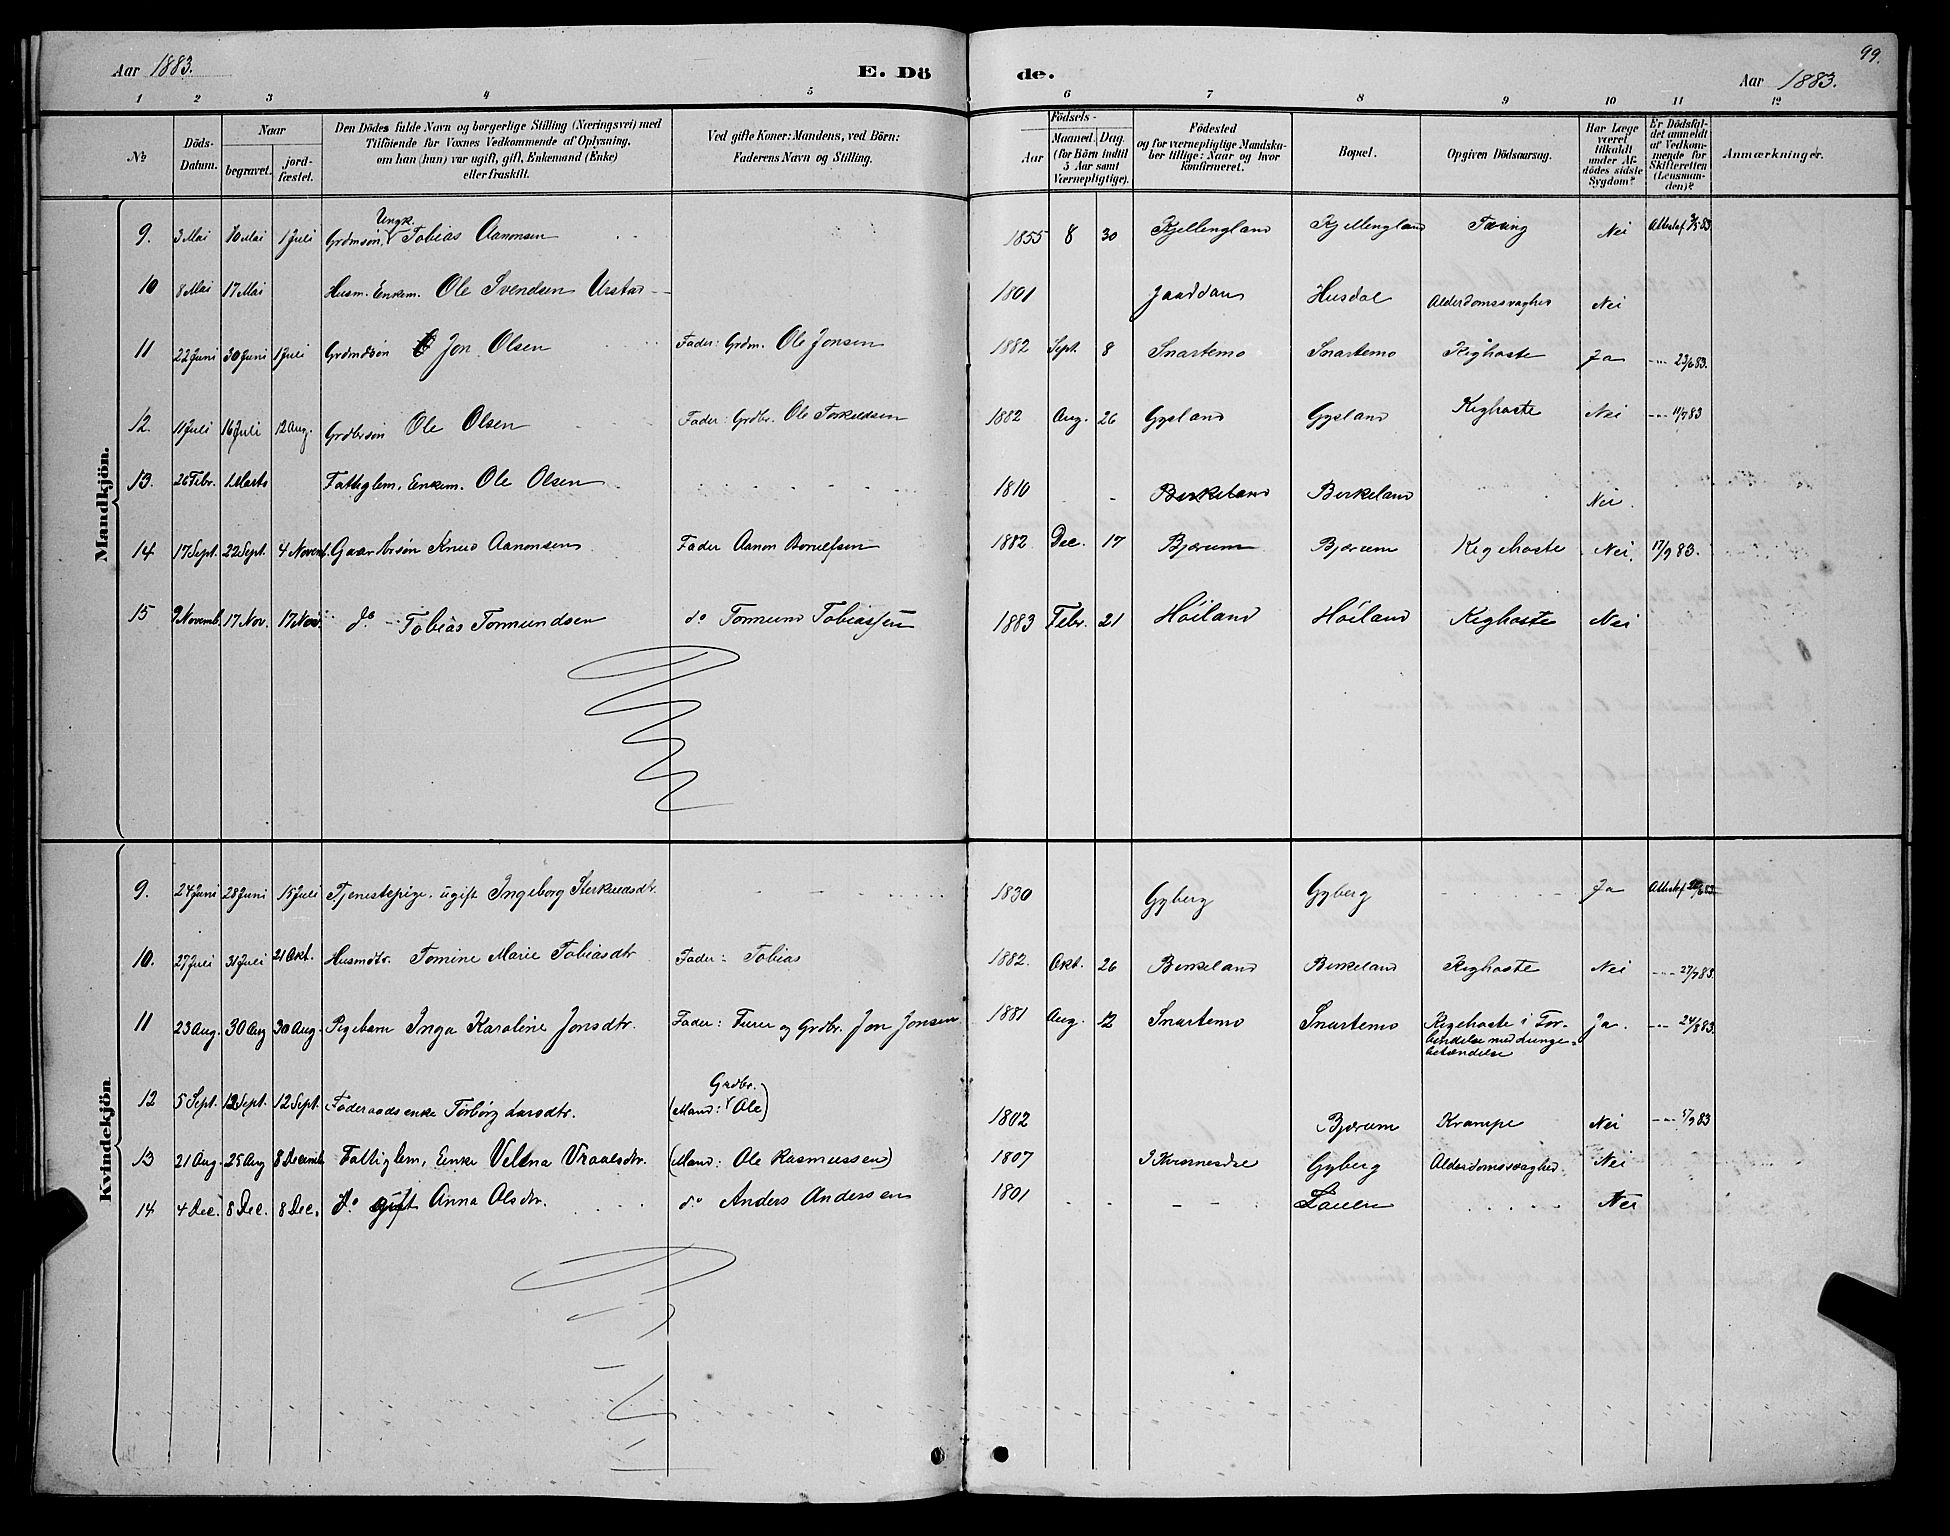 99.
Aar 1883.
E. Dö de.
Aar 1883.
1 2 3 4 5 6 7 8 9 10 11 12
No
Döds-Datum.
Naar
begravet.
jord-fæstet.
Den Dödes fulde Navn og borgerlige Stilling (Næringsvei) med
Tilföiende for Voxnes Vedkommende af Oplysning,
om han (hun) var ugift, gift, Enkemand (Enke)
eller fraskilt.
Ved gifte Koner: Mandens, ved Börn:
Faderens Navn og Stilling.
Födsels-
Aar
Maaned. Dag.
(for Börn indtil
5 Aar samt
Værnepligtige).
Födested
og for værnepligtige Mandska-
ber tillige: Naar og hvor
konfirmeret.
Bopæl.
Opgiven Dödsaarsag.
Har Læge
været
tilkaldt
under Af-
dödes sidste
Sygdom?
Er Dödsfal-
det anmeldt
af Vedkom-
mende for
Skifteretten
(Lensman-
den)?
Anmærkninger.
Mandkjön.
9. 3 Mai 10 Mai 1 Juli Grdmsön, Ungk. Tobias Aanonsen 1855 8 30 Kjellingland Kjellingland Tæring Nei Attest af 3/5 83
10 8 Mai 17 Mai Husm. Enkem. Ole Svendsen Urstad 1801 Jaaddan Husdal Alderdomssvaghed Nei
11 22 Juni 30 Juni 1 Juli Grdmdsön Jon Olsen Fader: Grdm. Ole Jonsen 1882 Sept. 8 Snartemo Snartemo Kighoste Ja 23/6 83.
12. 11 Juli 16 Juli 12 Aug. Grdbrsön Ole Olsen Fader: Grdbr. Ole Torkeldsen 1882 Aug. 26 Gysland Gysland Kighoste Nei 11/7 83
13. 26 Febr. 1 Marts Fattiglem, Enkem. Ole Olsen 1810 Birkeland Birkeland Nei.
14 17 Sept. 22 Sept. 4 Novemb. Gaardbrsön Knud Aanonsen Fader Aanon Bornelfsen 1882 Dec. 17 Bjærum Bjærum Kigehoste Nei. 17/9 83.
15 9 Novemb. 17 Nov. 17 Nov. do Tobias Tormundsen do Tormund Tobiassen 1883 Febr. 21 Höiland Höiland Kighoste Nei
Kvindekjön
9. 24 Juni 28 Juni 15 Juli Tjenestepige, ugift Ingeborg Sterkulsdtr. 1830 Gyberg Gyberg Ja Attest af 26/6 83
10. 27 Juli 31 Juli 21 Okt. Husmdtr. Tomine Marie Tobiasdtr Fader: Tobias 1882. Okt. 26 Birkeland Birkeland Kighoste Nei 27/7 83
11 23 Aug. 30 Aug 30 Aug. Pigebarn Inga Karoline Jonsdtr. Fader: Furer og Grdbr. Jon Jonsen 1881 Aug. 12 Snartemo Snartemo Kigehoste i For-
bindelse med Lunge-
betændelse Ja. 24/8 83.
12 5 Sept. 12 Sept. 12 Sept. Föderaadsenke Torborg Larsdtr. (Mand: Grdbr. Ole) 1802 Bjærum Krampe Nei 5/9 83
13 21 Aug. 25 Aug 8 Decemb. Fattiglem, Enke Velena Vraalsdtr. (Mand: Ole Rasmussen) 1807 I Kvinesdal Gyberg Alderdomssvaghed. Nei
14 4 Dec. 8 Dec. 8 Dec. do gift Anna Olsdtr. do Anders Andersen 1801 Lauen Nei